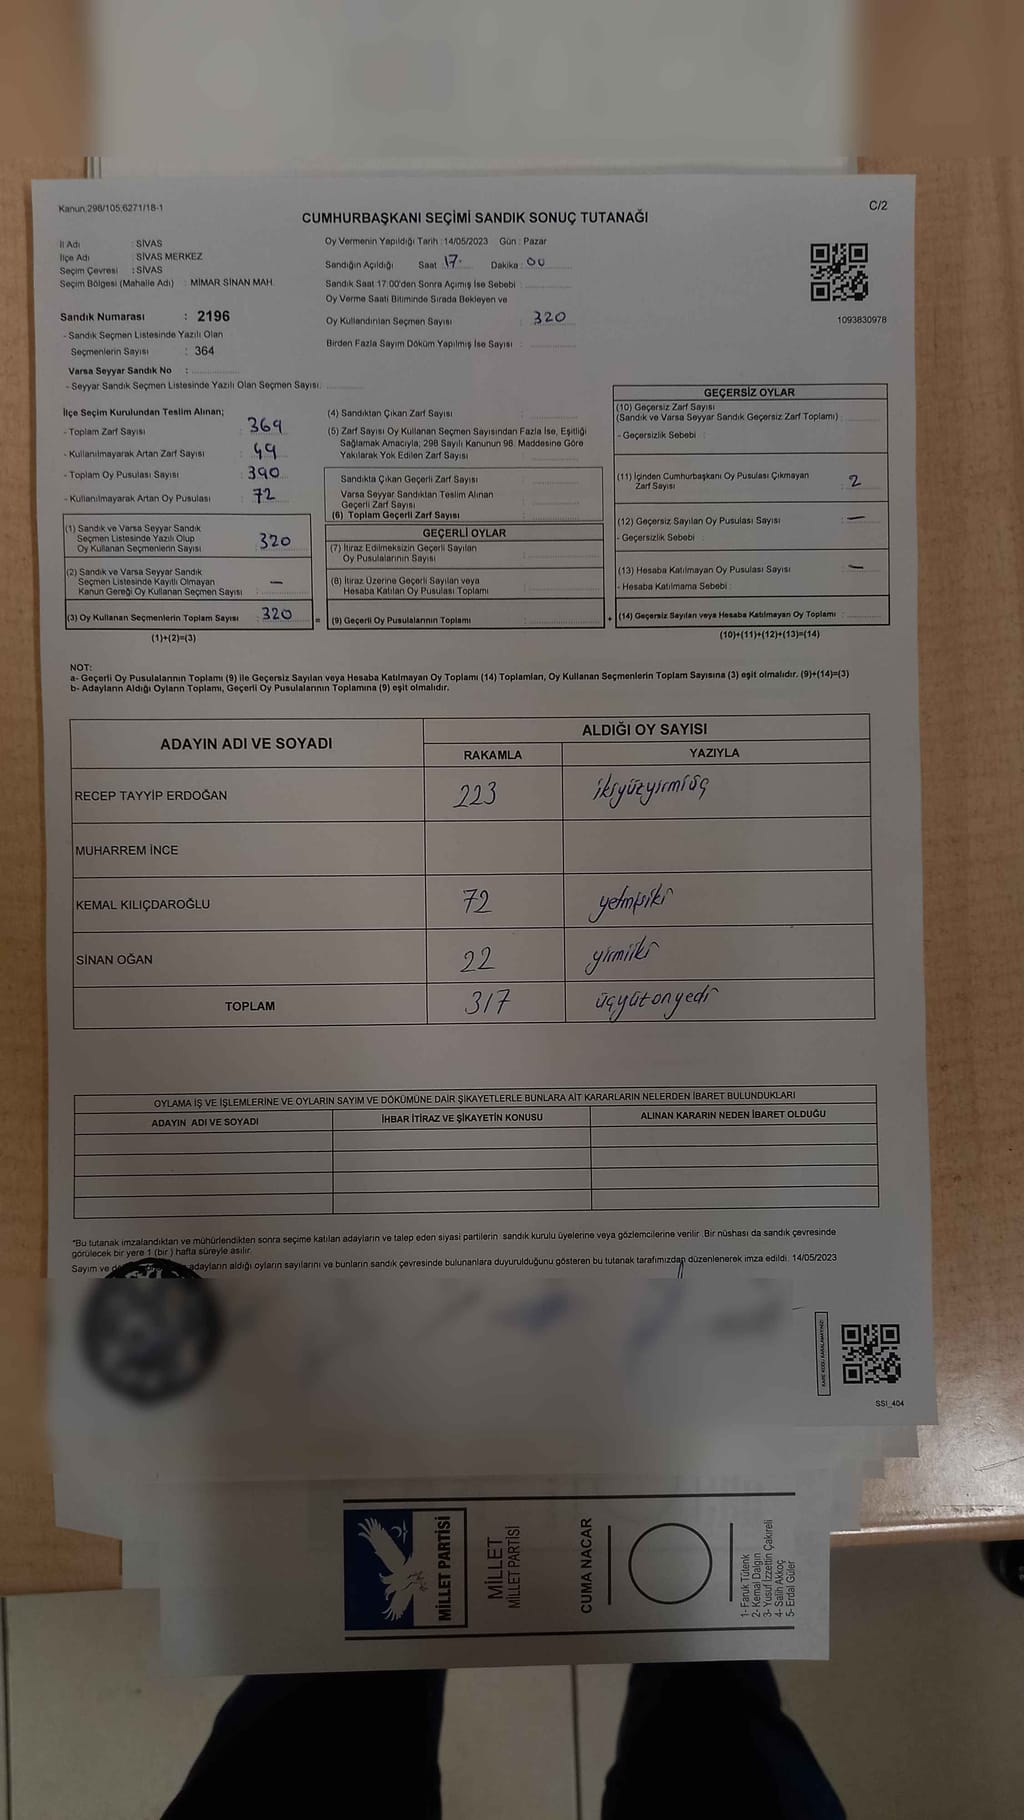 Kanun,298/105,6271/18-1
C/2
CUMHURBAŞKANI SEÇİMİ SANDIK SONUÇ TUTANAĞI
İl Adı : SİVAS
İlçe Adı : SİVAS MERKEZ
Seçim Çevresi : SİVAS
Seçim Bölgesi (Mahalle Adı) : MİMAR SİNAN MAH.
Sandık Numarası : 2196
- Sandık Seçmen Listesinde Yazılı Olan
Seçmenlerin Sayısı : 364
Varsa Seyyar Sandık No :
- Seyyar Sandık Seçmen Listesinde Yazılı Olan Seçmen Sayısı:
Oy Vermenin Yapıldığı Tarih : 14/05/2023 Gün : Pazar
Sandığın Açıldığı Saat : 17 Dakika : 00
Sandık Saat 17:00'den Sonra Açımış İse Sebebi :
Oy Verme Saati Bitiminde Sırada Bekleyen ve
Oy Kullandırılan Seçmen Sayısı : 320
Birden Fazla Sayım Döküm Yapılmış İse Sayısı :
1093830978
İlçe Seçim Kurulundan Teslim Alınan;
- Toplam Zarf Sayısı : 369
- Kullanılmayarak Artan Zarf Sayısı : 49
- Toplam Oy Pusulası Sayısı : 390
- Kullanılmayarak Artan Oy Pusulası : 72
(1) Sandık ve Varsa Seyyar Sandık
Seçmen Listesinde Yazılı Olup
Oy Kullanan Seçmenlerin Sayısı : 320
(2) Sandık ve Varsa Seyyar Sandık
Seçmen Listesinde Kayıtlı Olmayan
Kanun Gereği Oy Kullanan Seçmen Sayısı : —
(3) Oy Kullanan Seçmenlerin Toplam Sayısı : 320
(1)+(2)=(3)
(4) Sandıktan Çıkan Zarf Sayısı :
(5) Zarf Sayısı Oy Kullanan Seçmen Sayısından Fazla İse, Eşitliği
Sağlamak Amacıyla, 298 Sayılı Kanunun 98. Maddesine Göre
Yakılarak Yok Edilen Zarf Sayısı :
Sandıkta Çıkan Geçerli Zarf Sayısı :
Varsa Seyyar Sandıktan Teslim Alınan
Geçerli Zarf Sayısı :
(6) Toplam Geçerli Zarf Sayısı :
GEÇERLİ OYLAR
(7) İtiraz Edilmeksizin Geçerli Sayılan
Oy Pusulalarının Sayısı :
(8) İtiraz Üzerine Geçerli Sayılan veya
Hesaba Katılan Oy Pusulası Toplamı :
= (9) Geçerli Oy Pusulalarının Toplamı :
GEÇERSİZ OYLAR
(10) Geçersiz Zarf Sayısı
(Sandık ve Varsa Seyyar Sandık Geçersiz Zarf Toplamı) :
- Geçersizlik Sebebi :
(11) İçinden Cumhurbaşkanı Oy Pusulası Çıkmayan
Zarf Sayısı : 2
(12) Geçersiz Sayılan Oy Pusulası Sayısı : —
- Geçersizlik Sebebi :
(13) Hesaba Katılmayan Oy Pusulası Sayısı : —
- Hesaba Katılmama Sebebi :
+ (14) Geçersiz Sayılan veya Hesaba Katılmayan Oy Toplamı :
(10)+(11)+(12)+(13)=(14)
NOT:
a- Geçerli Oy Pusulalarının Toplamı (9) ile Geçersiz Sayılan veya Hesaba Katılmayan Oy Toplamı (14) Toplamları, Oy Kullanan Seçmenlerin Toplam Sayısına (3) eşit olmalıdır. (9)+(14)=(3)
b- Adayların Aldığı Oyların Toplamı, Geçerli Oy Pusulalarının Toplamına (9) eşit olmalıdır.
ADAYIN ADI VE SOYADI ALDIĞI OY SAYISI
RAKAMLA YAZIYLA
RECEP TAYYİP ERDOĞAN 223 ikiyüzyirmiüç
MUHARREM İNCE
KEMAL KILIÇDAROĞLU 72 yetmişiki
SİNAN OĞAN 22 yirmiiki
TOPLAM 317 üçyüzonyedi
OYLAMA İŞ VE İŞLEMLERİNE VE OYLARIN SAYIM VE DÖKÜMÜNE DAİR ŞİKAYETLERLE BUNLARA AİT KARARLARIN NELERDEN İBARET BULUNDUKLARI
ADAYIN ADI VE SOYADI İHBAR İTİRAZ VE ŞİKAYETİN KONUSU ALINAN KARARIN NEDEN İBARET OLDUĞU
*Bu tutanak imzalandıktan ve mühürlendikten sonra seçime katılan adayların ve talep eden siyasi partilerin sandık kurulu üyelerine veya gözlemcilerine verilir. Bir nüshası da sandık çevresinde
görülecek bir yere 1 (bir) hafta süreyle asılır.
Sayım ve adayların aldığı oyların sayılarını ve bunların sandık çevresinde bulunanlara duyurulduğunu gösteren bu tutanak tarafımızdan düzenlenerek imza edildi. 14/05/2023
KARE KODU KARALAMAYINIZ!
SSI_404
MİLLET PARTİSİ
MİLLET
MİLLET PARTİSİ
CUMA NACAR
1- Faruk Tütenk
2- Kemal Dalgın
3- Yusuf İzzettin Çakıreli
4- Salih Akkoç
5- Erdal Güler